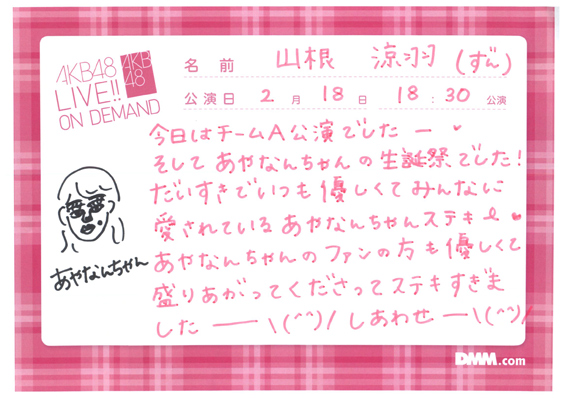 AKB48
LIVE!!
ON DEMAND
AKB
48
名前 山根 涼羽 (ずん)
公演日 2月18日 18:30 公演
今日はチームA公演でしたー♥
そして あやなんちゃんの生誕祭でした!
だいすきでいつも優しくてみんなに
愛されているあやなんちゃんステキ♥
あやなんちゃんのファンの方も優しくて
盛りあがってくださってステキすぎま
したー\(^^)/ しあわせー\(^^)/
あやなんちゃん
DMM.com